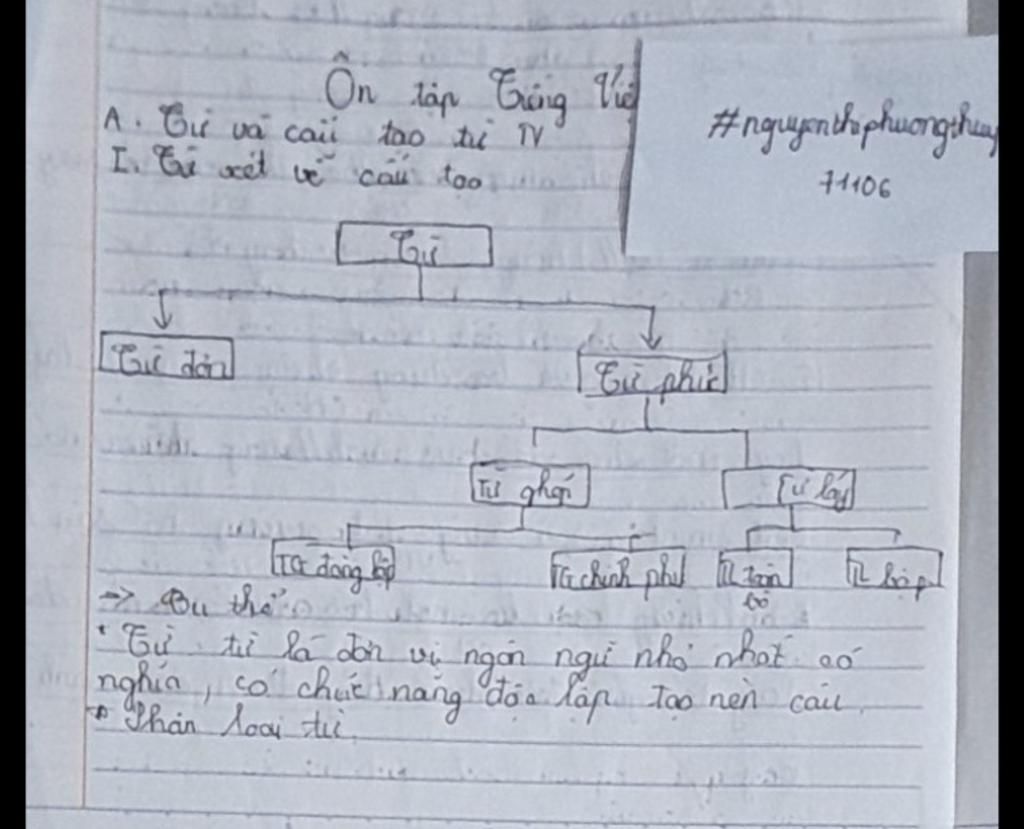 Ôn tập Tiếng Việ
#nguyenthiphuongthuy
71106
A. Từ và cấu tạo từ TV
I. Từ xét về cấu tạo
Từ
Từ đơn
Từ phức
Từ ghép
Từ láy
TG đẳng lập
TG chính phụ
TL toàn
bộ
TL bộ p
→ Cụ thể
Từ từ là đơn vị ngôn ngữ nhỏ nhất có
nghĩa, có chức năng độc lập tạo nên câu.
Phân loại từ